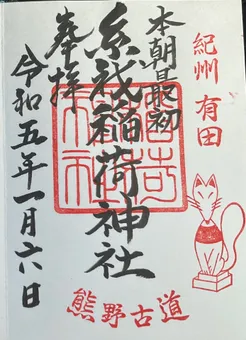 紀州 有田
本朝最初
糸我稲荷神社
奉拝
令和五年一月六日
熊野古道